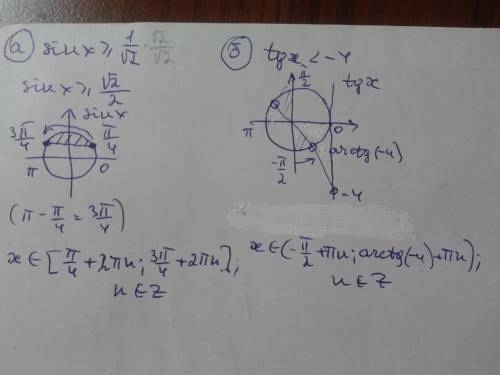 а) sin x ≥ 1/√2 · √2/√2
sin x ≥ √2/2
sin x
3π/4 π/4
π 0
(π - π/4 = 3π/4)
x ∈ [π/4 + 2πn; 3π/4 + 2πn],
n ∈ Z
б) tg x < -4
π/2 tg x
π 0
-π/2 arctg(-4)
-4
x ∈ (-π/2 + πn; arctg(-4) + πn);
n ∈ Z